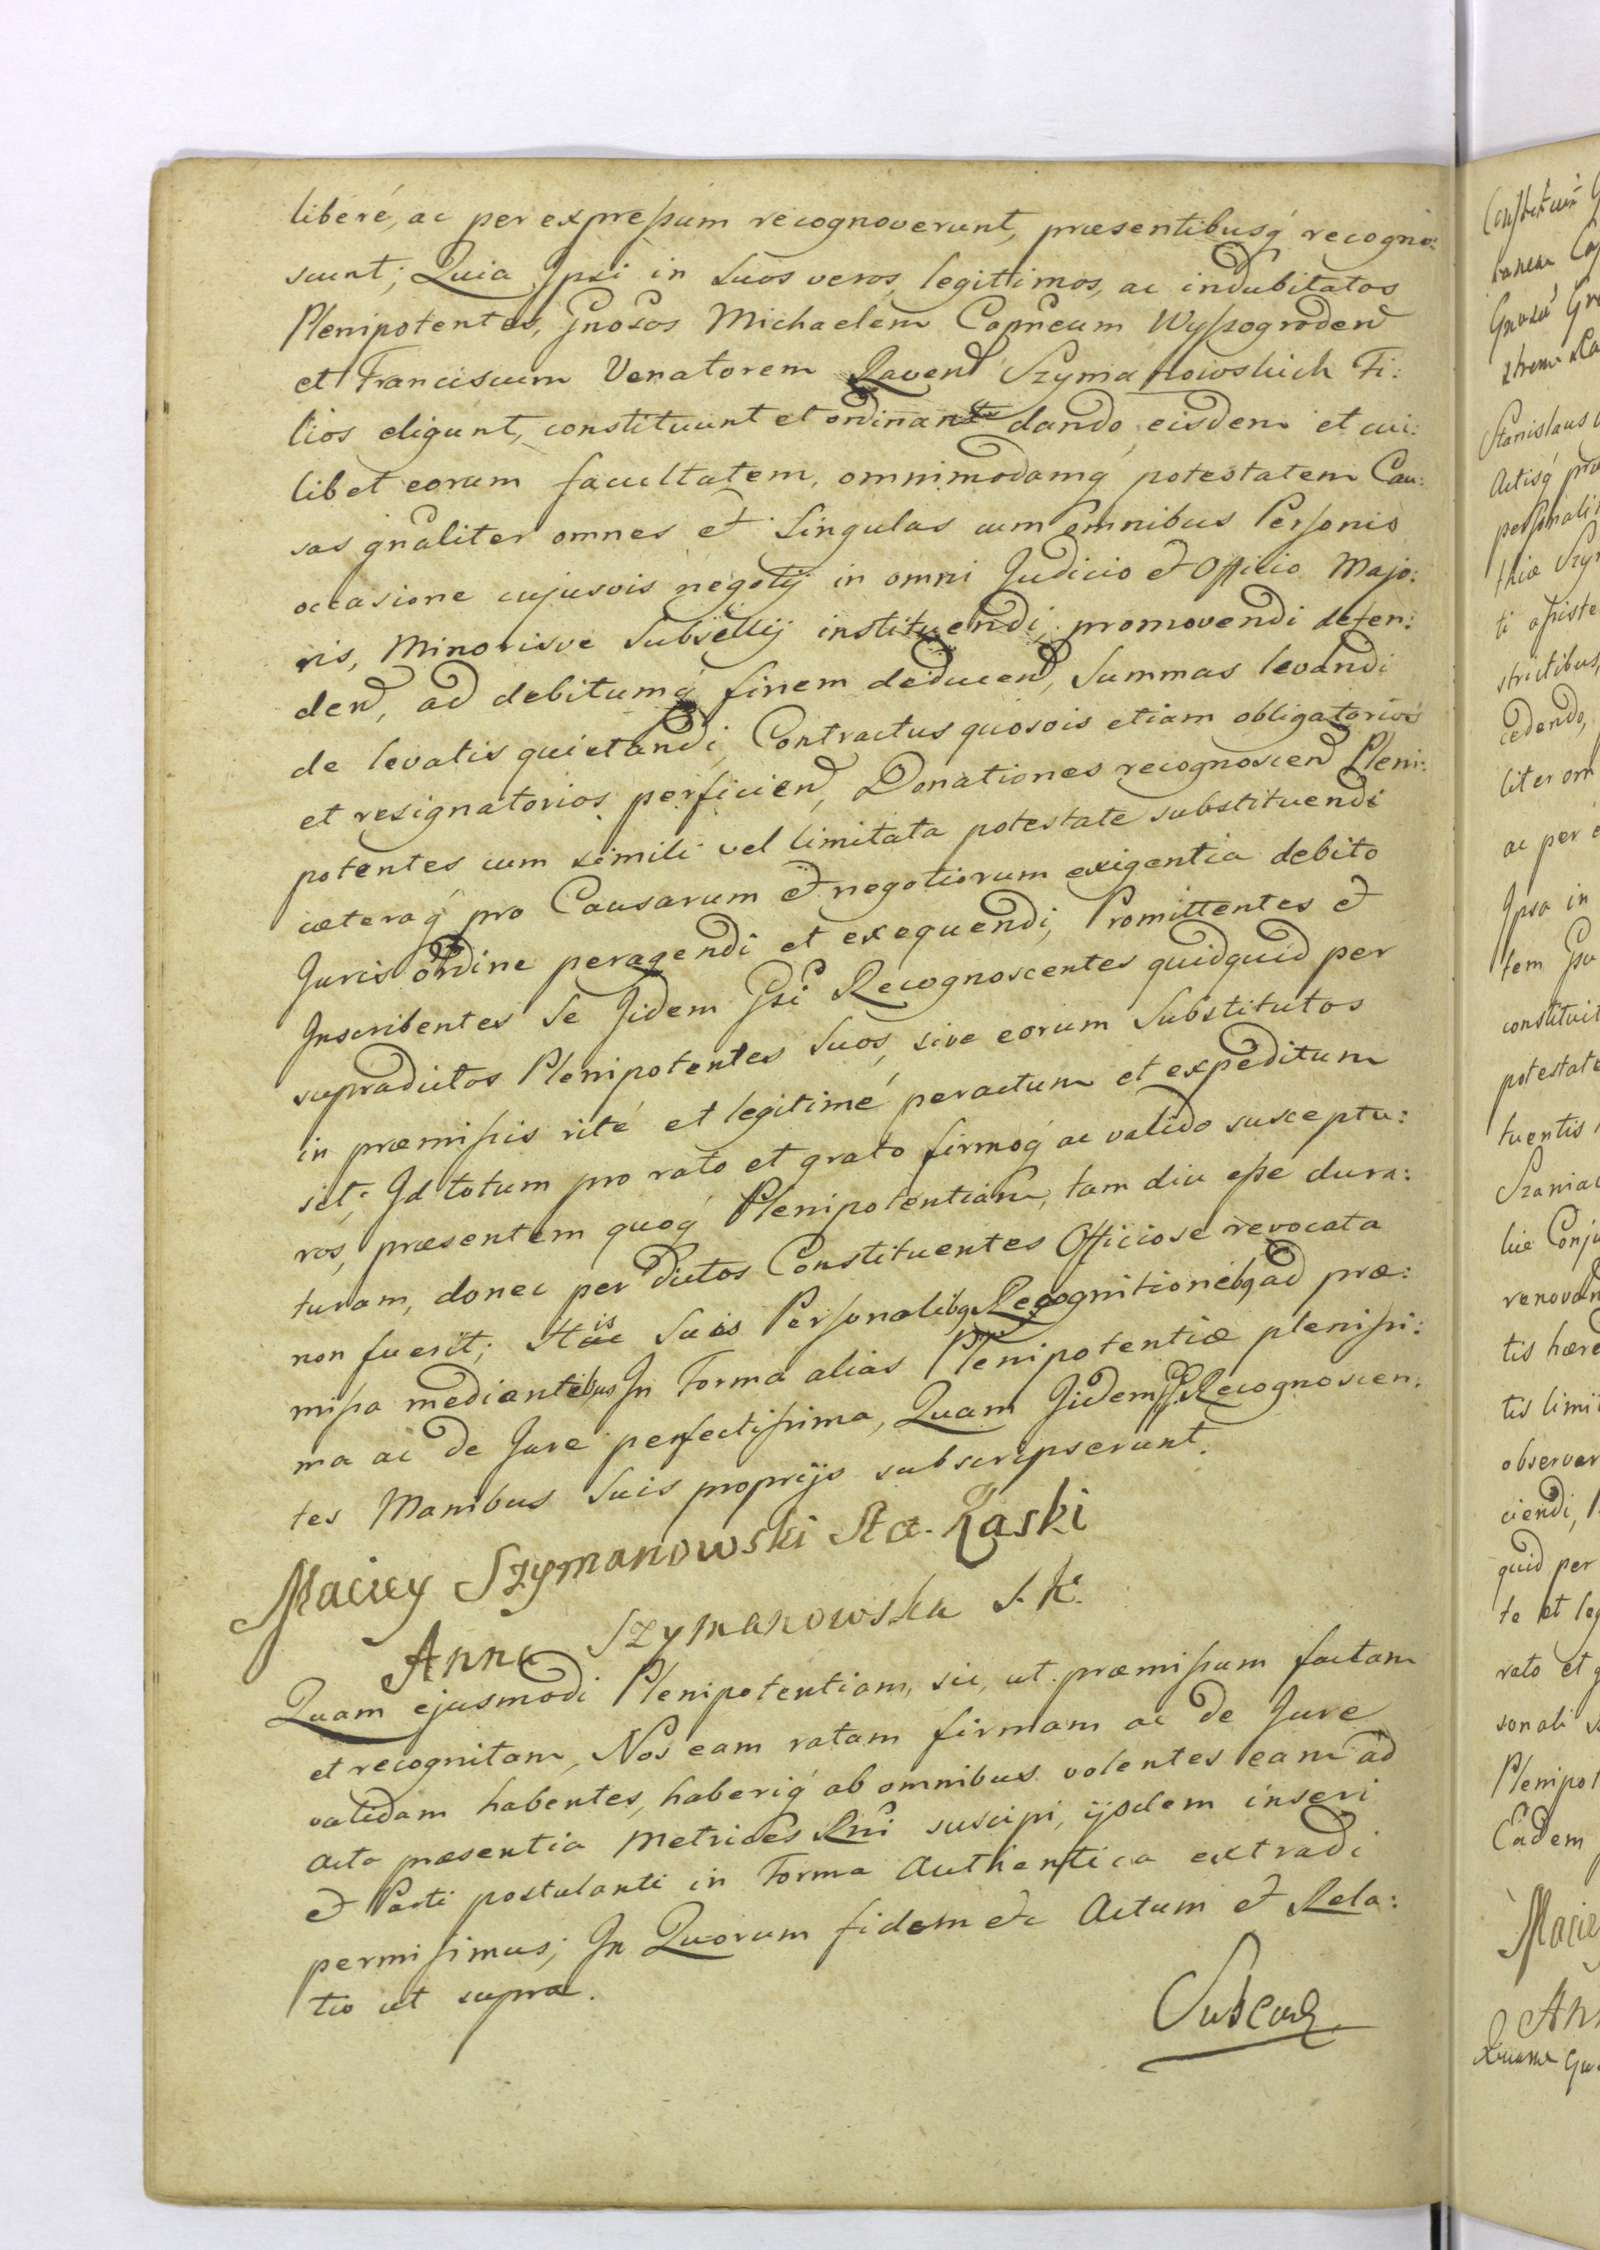 liberé, ac per expressum recognoverunt, præsentibusq́ recogno:
scunt; Quia Ipsi in Suos veros, legittimos, ac indubitatos
Plenipotentes, Gnosos Michaelem Capneum Wyszogroden
et Franciscum Venatorem Raven Szymanowskich Fi:
lios eligunt, constituunt et ordinant dando eisdem et cui:
libet eorum facultatem, omnimodamq́ potestatem Cau:
sas gnaliter omnes et Singulas cum omnibus Personis
occasione cujusvis negotij in omni Judicio et Officio Majo:
ris, Minorisve Subsellij instituendi, promovendi defen:
den, ad debitumq́ finem deducen, Summas levandi
de levatis quietandi, Contractus quosvis etiam obligatorios
et resignatorios perficien, Donationes recognoscen Pleni:
potentes cum simili vel limitata potestate substituendi
cæteraq́ pro Causarum et negotiorum exigentia debito
Juris ordine peragendi et exequendi, Promittentes et
Inscribentes Se Iidem Gsi Recognoscentes quidquid per
supradictos Plenipotentes Suos, sive eorum Substitutos
in præmissis rité et legitimé peractum et expeditum
sit, Id totum pro rato et grato firmoq́ ac valido susceptu:
ros, præsentem quoq́ Plenipotentiam, tam diu esse dura:
turam, donec per dictos Constituentes Officiose revocata
non fuerit; Suis Personalibq Recognitionibq ad præ:
missa mediantibus In Forma alias Plenipotentiæ plenissi:
ma ac de Jure perfectissima, Quam Iidem Gsi Recognoscen:
tes Manibus Suis proprijs subscripserunt.
Maciey Szymanowski Sta. Raski
Anna Szymanowska S. R.
Quam ejusmodi Plenipotentiam, sic, ut præmissum factam
et recognitam, Nos eam ratam firmam ac de Jure
validam habentes, haberiq́ ab omnibus volentes eam ad
Acta præsentia Metrices Rni suscipi, ijsdem inseri
et Parti postulanti in Forma Authentica extradi
permisimus; In Quorum fidem etc Actum et Rela:
tio ut supra.